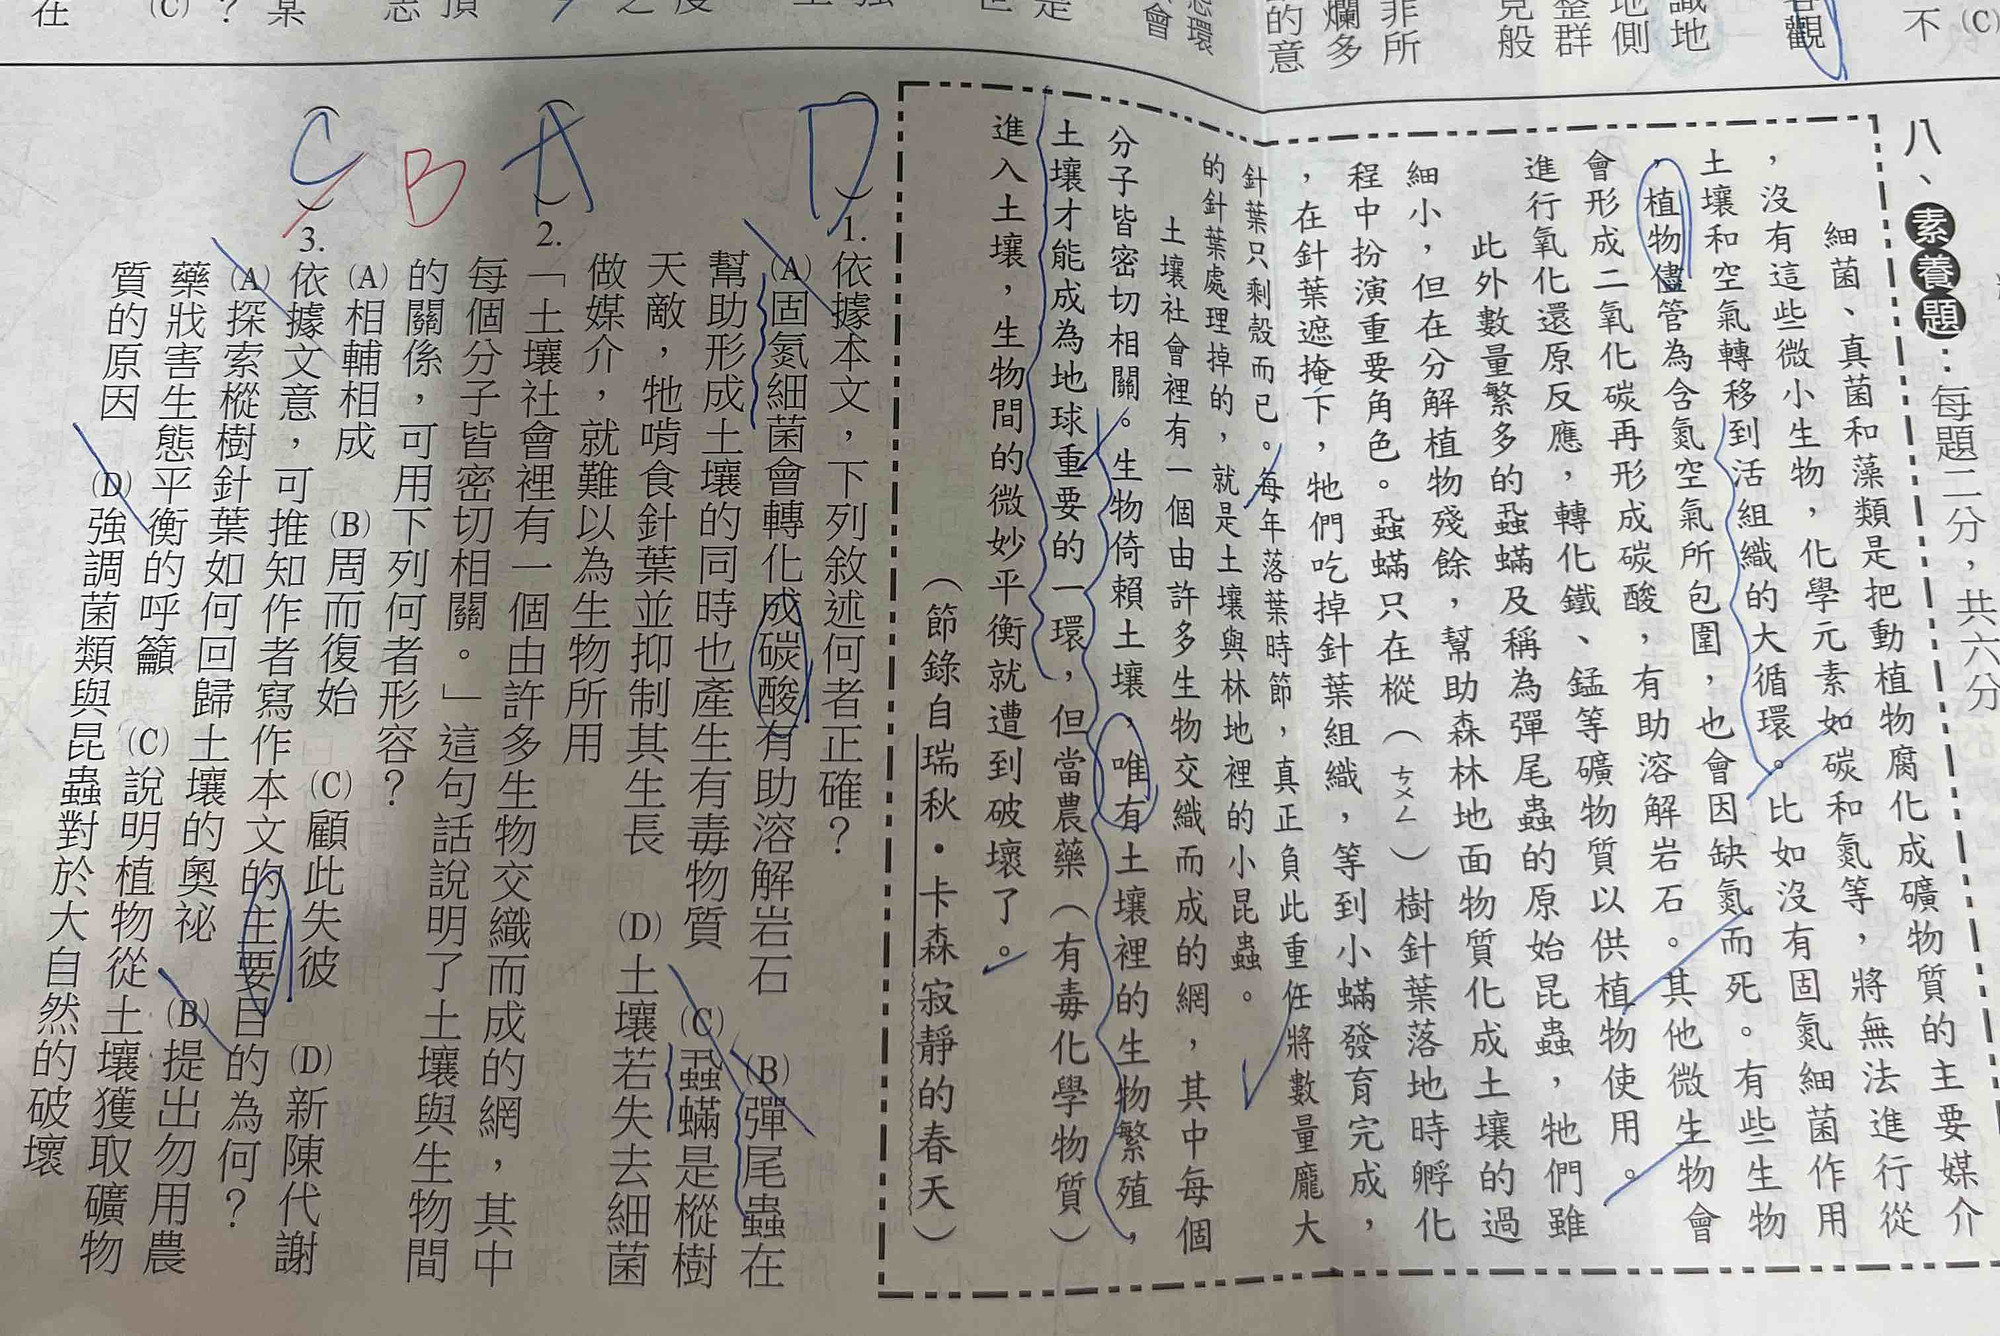 八、素養題：每題二分，共六分
細菌、真菌和藻類是把動植物腐化成礦物質的主要媒介
，沒有這些微小生物，化學元素如碳和氮等，將無法進行從
土壤和空氣轉移到活組織的大循環。比如沒有固氮細菌作用
，植物儘管為含氮空氣所包圍，也會因缺氮而死。有些生物
會形成二氧化碳再形成碳酸，有助溶解岩石。其他微生物會
進行氧化還原反應，轉化鐵、錳等礦物質以供植物使用。
此外數量繁多的蝨蟎及稱為彈尾蟲的原始昆蟲，牠們雖
細小，但在分解植物殘餘，幫助森林地面物質化成土壤的過
程中扮演重要角色。蝨蟎只在樅（ㄘㄨㄥ）樹針葉落地時孵化
，在針葉遮掩下，牠們吃掉針葉組織，等到小蟎發育完成，
針葉只剩殼而已。每年落葉時節，真正負此重任將數量龐大
的針葉處理掉的，就是土壤與林地裡的小昆蟲。
土壤社會裡有一個由許多生物交織而成的網，其中每個
分子皆密切相關。生物倚賴土壤，唯有土壤裡的生物繁殖，
土壤才能成為地球重要的一環，但當農藥（有毒化學物質）
進入土壤，生物間的微妙平衡就遭到破壞了。
（節錄自瑞秋·卡森寂靜的春天）
（D）1.依據本文，下列敘述何者正確？
(A)固氮細菌會轉化成碳酸有助溶解岩石　(B)彈尾蟲在
幫助形成土壤的同時也產生有毒物質　(C)蝨蟎是樅樹
天敵，牠啃食針葉並抑制其生長　(D)土壤若失去細菌
做媒介，就難以為生物所用
（A）2.「土壤社會裡有一個由許多生物交織而成的網，其中
每個分子皆密切相關。」這句話說明了土壤與生物間
的關係，可用下列何者形容？
(A)相輔相成　(B)周而復始　(C)顧此失彼　(D)新陳代謝
B
（C）3.依據文意，可推知作者寫作本文的主要目的為何？
(A)探索樅樹針葉如何回歸土壤的奧祕　(B)提出勿用農
藥戕害生態平衡的呼籲　(C)說明植物從土壤獲取礦物
質的原因　(D)強調菌類與昆蟲對於大自然的破壞